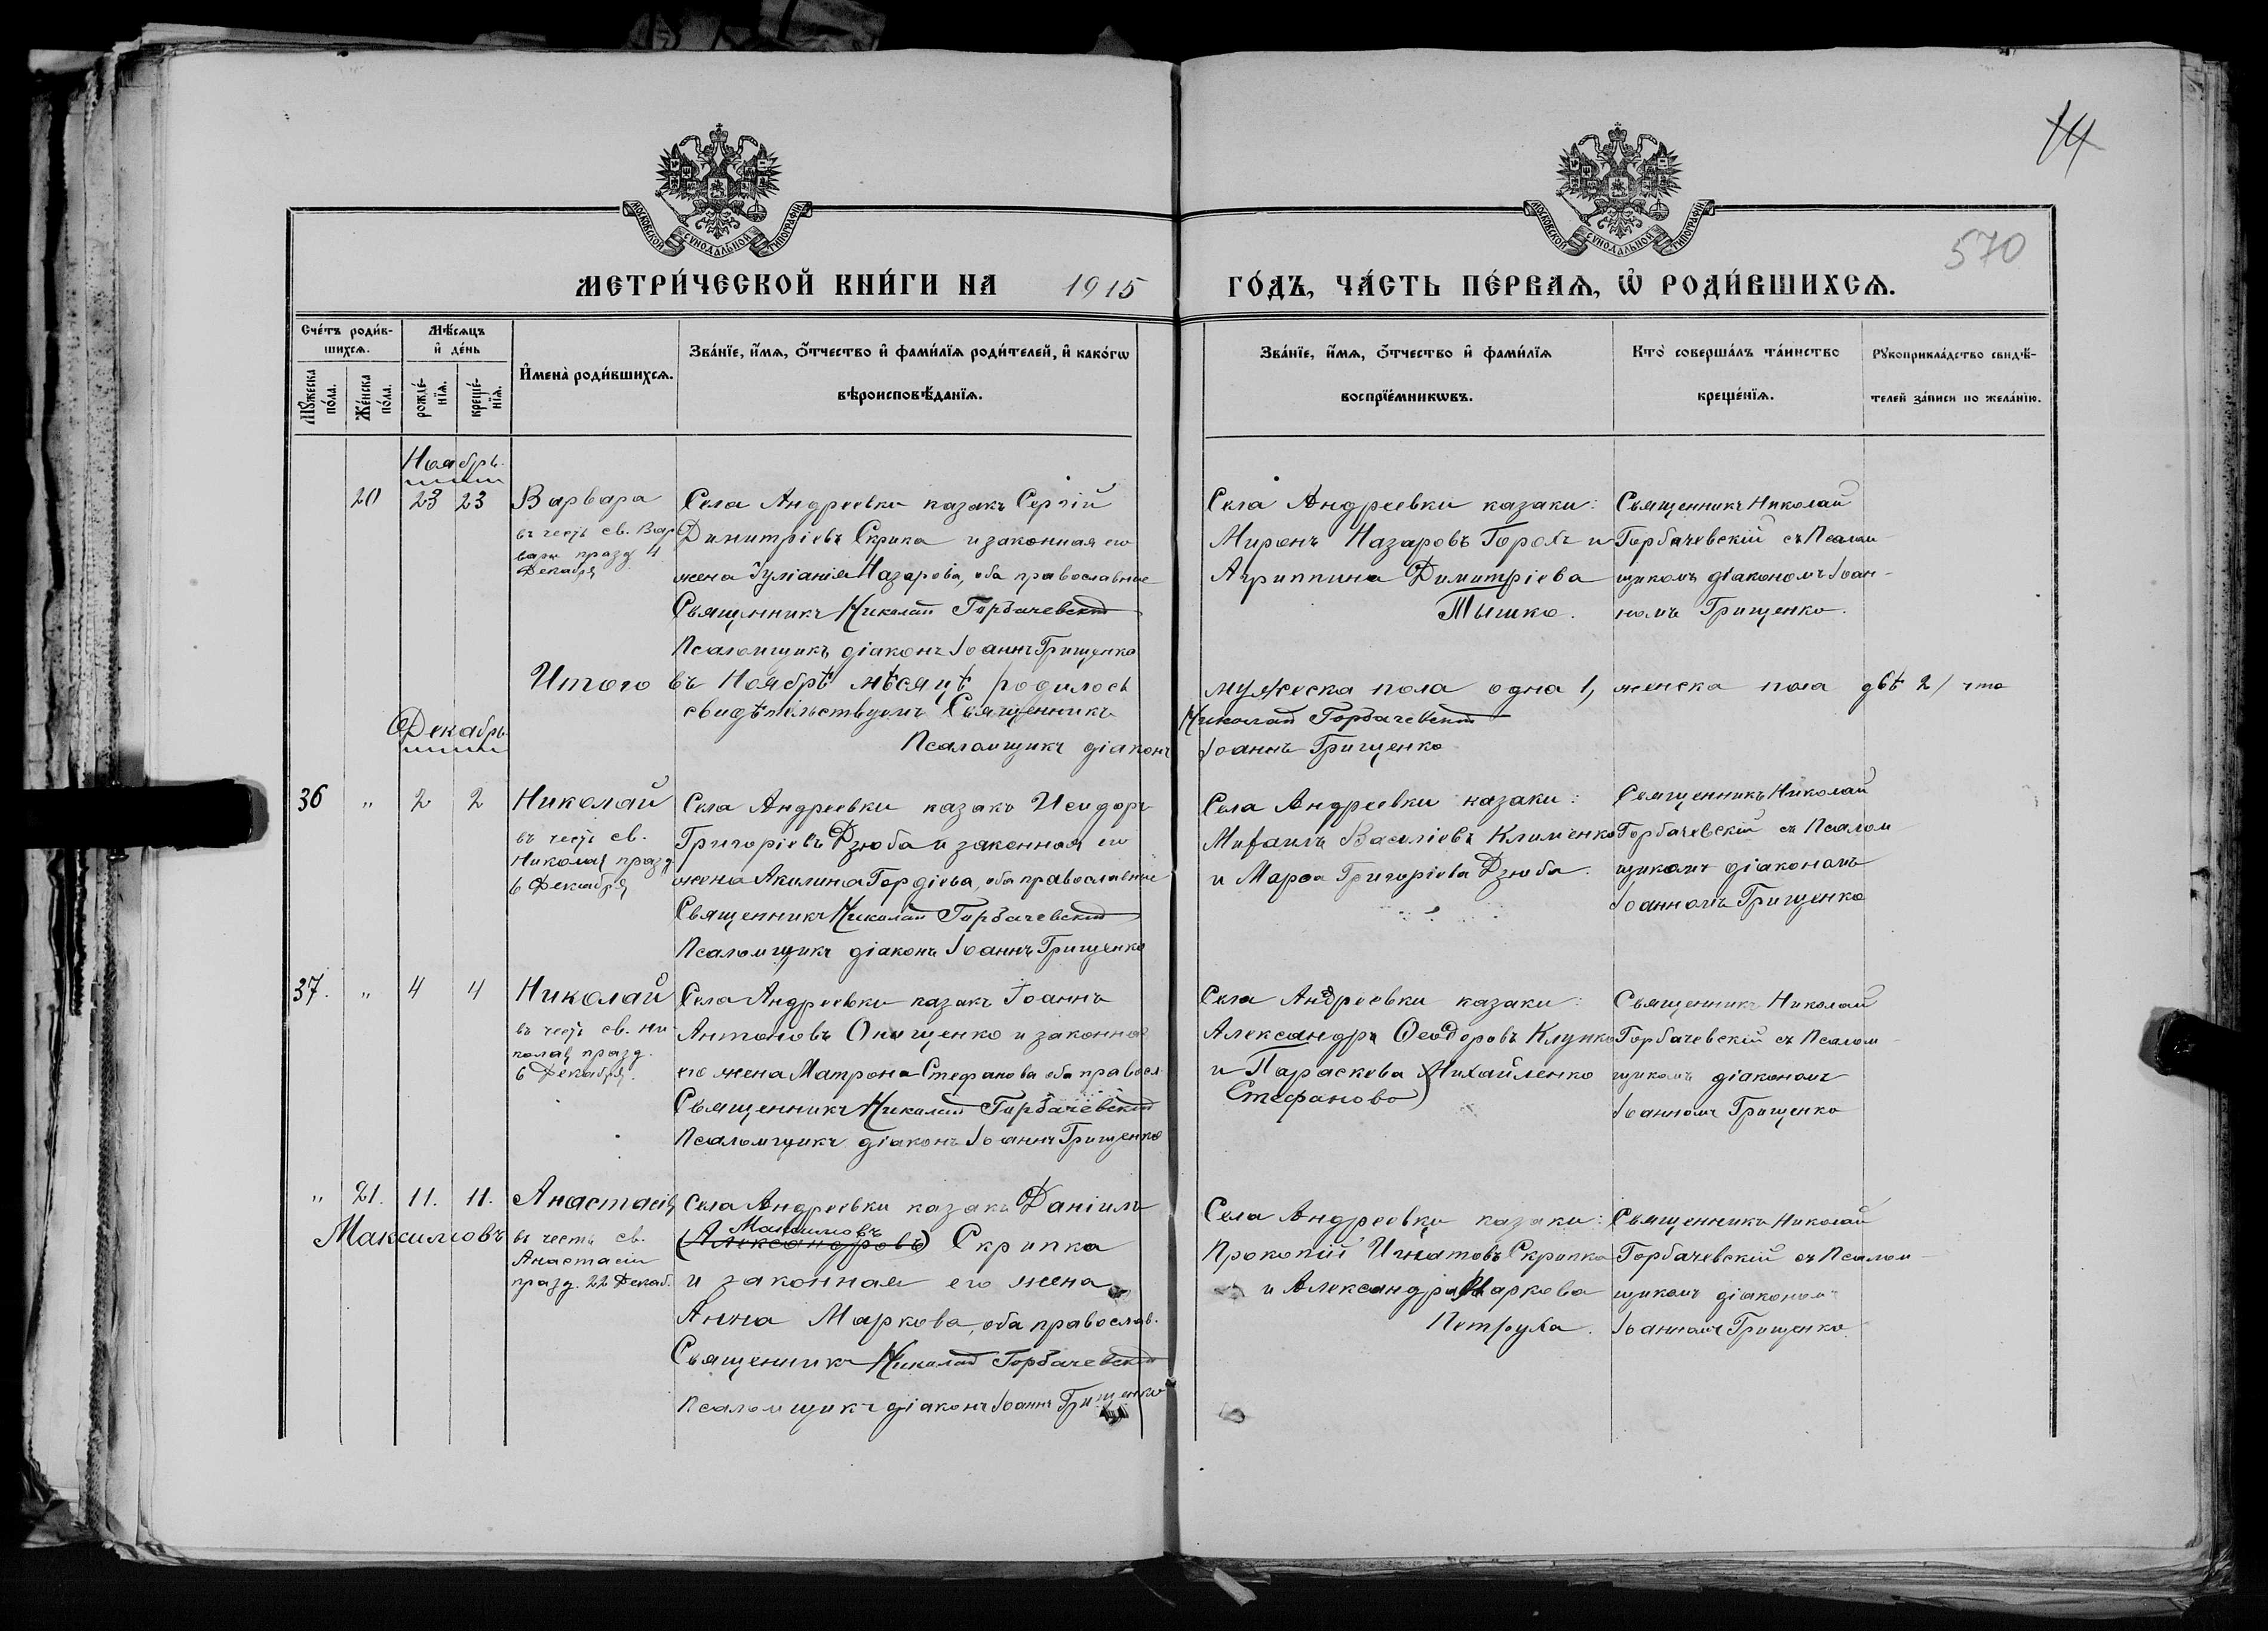 14
570
МОСКОВСКОЙ СѴНОДАЛЬНОЙ ТИПОГРАФІИ
МОСКОВСКОЙ СѴНОДАЛЬНОЙ ТИПОГРАФІИ
МЕТРИ́ЧЕСКОЙ КНИ́ГИ НА 1915 ГО́ДЪ, ЧА́СТЬ ПЕ́РВАѦ, Ѡ҆ РОДИ́ВШИХСѦ.
Сче́тъ роди́в-
шихсѧ.
Мꙋ́жеска по́ла.
Же́нска по́ла.
Мѣ́сѧцъ
и҆ де́нь
рожде́-
нїѧ.
креще́-
нїѧ.
И҆мена̀ роди́вшихсѧ.
Зва́нїе, и҆́мѧ, ѻ҆́тчество и҆ фами́лїѧ роди́телей, и҆ како́гѡ
вѣроисповѣ́данїѧ.
Зва́нїе, и҆́мѧ, ѻ҆́тчество и҆ фами́лїѧ
воспрїе́мникѡвъ.
Кто̀ соверша́лъ та́инство
креще́нїѧ.
Рꙋкоприкла́дство свидѣ́-
телей за́писи по жела́нїю.
Ноябрь.
20 23 23 Варвара
въ честь св. Вар
вары празд. 4
Декабря
Села Андреевки казакъ Сергій
Димитріевъ Скрипка и законная его
жена Іуліанія Назарова, оба православные
Священникъ Николай Горбачевскій
Псаломщикъ діаконъ Іоаннъ Грищенко
Села Андреевки казаки:
Миронъ Назаровъ Горохъ и
Агриппина Димитріева
Тышко.
Священникъ Николай
Горбачевскій съ Псалом-
щикомъ діакономъ Іоан-
номъ Грищенко.
Итого въ Ноябрѣ мѣсяцѣ родилось мужеска пола одна 1, женска пола двѣ 2, что
свидѣтельствуемъ Священникъ Николай Горбачевскій
Псаломщикъ діаконъ Іоаннъ Грищенко
Декабрь
36 " 2 2 Николай
въ честь св.
Николая празд
6 Декабря
Села Андреевки казакъ Исидоръ
Григоріевъ Дзюба и законная его
жена Акилина Гордіева, оба православные
Священникъ Николай Горбачевскій
Псаломщикъ діаконъ Іоаннъ Грищенко
Села Андреевки казаки:
Михаилъ Василіевъ Клименко
и Марѳа Григоріева Дзюба.
Священникъ Николай
Горбачевскій съ Псалом
щикомъ діакономъ
Іоанномъ Грищенко
37. " 4 4 Николай
въ честь св. Ни-
колая празд.
6 Декабря.
Села Андреевки казакъ Іоаннъ
Антоновъ Онищенко и законная
его жена Матрона Стефанова оба правосл
Священникъ Николай Горбачевскій
Псаломщикъ діаконъ Іоаннъ Грищенко
Села Андреевки казаки:
Александръ Ѳеодоровъ Клунко
и Параскева Михайленко
Стефанова)
Священникъ Николай
Горбачевскій съ Псалом-
щикомъ діакономъ
Іоанномъ Грищенко
" 21. 11. 11. Анастасія
Максимовъ
въ честь св.
Анастасіи
празд. 22 Декаб.
Села Андреевки казакъ Даніилъ
Максимовъ
(Александровъ) Скрипка
и законная его жена
Анна Маркова, оба православ.
Священникъ Николай Горбачевскій
Псаломщикъ діаконъ Іоаннъ Грищенко
Села Андреевки казаки:
Прокопій Игнатовъ Скрипка
и Александра Маркова
Петруха.
Священникъ Николай
Горбачевскій съ Псалом-
щикомъ діакономъ
Іоанномъ Грищенко